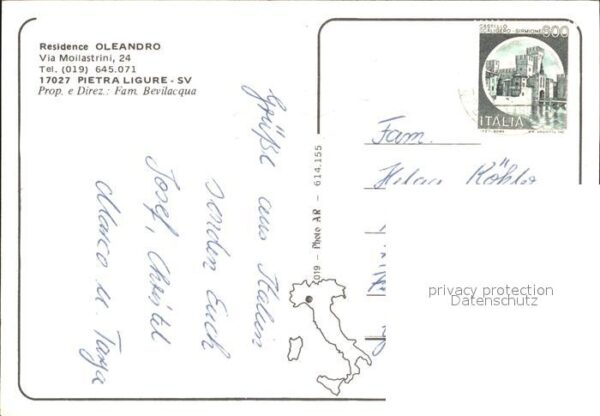 Residence OLEANDRO
Via Moilastrini, 24
Tel. (019) 645.071
17027 PIETRA LIGURE - SV
Prop. e Direz.: Fam. Bevilacqua
Grüße aus Italien
senden Euch
Josef, Christel
Marco u. Tanja
019 - Photo AR - 614.155
CASTELLO
SCALIGERO - SIRMIONE
600
ITALIA
Fam.
Köhle
privacy protection
Datenschutz